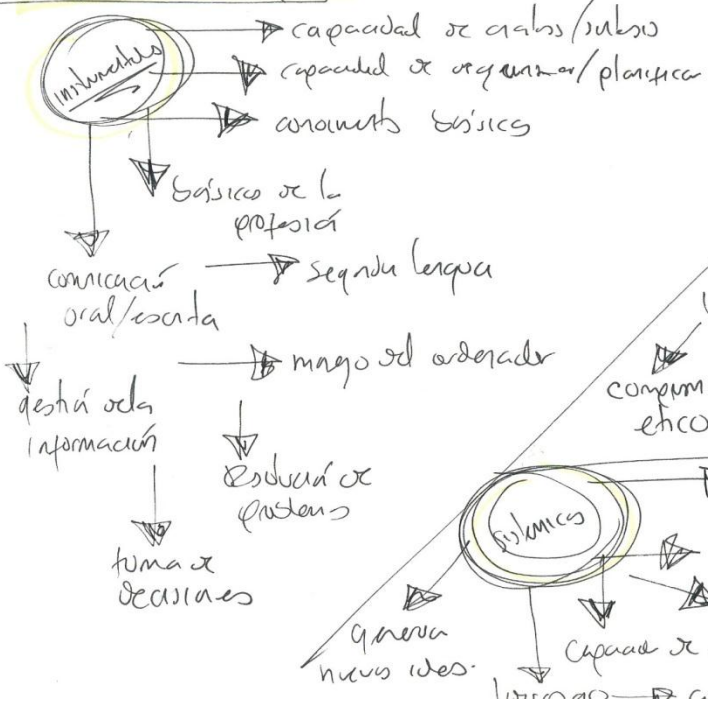 instrumentales
capacidad de analisis/sintesis
capacidad de organizar/planificar
conocimientos básicos
básicos de la
profesión
comunicación
oral/escrita
segunda lengua
gestión de la
información
manejo del ordenador
resolución de
problemas
toma de
decisiones
etico
sistemicas
generar
nuevas ideas.
capacidad de
liderazgo